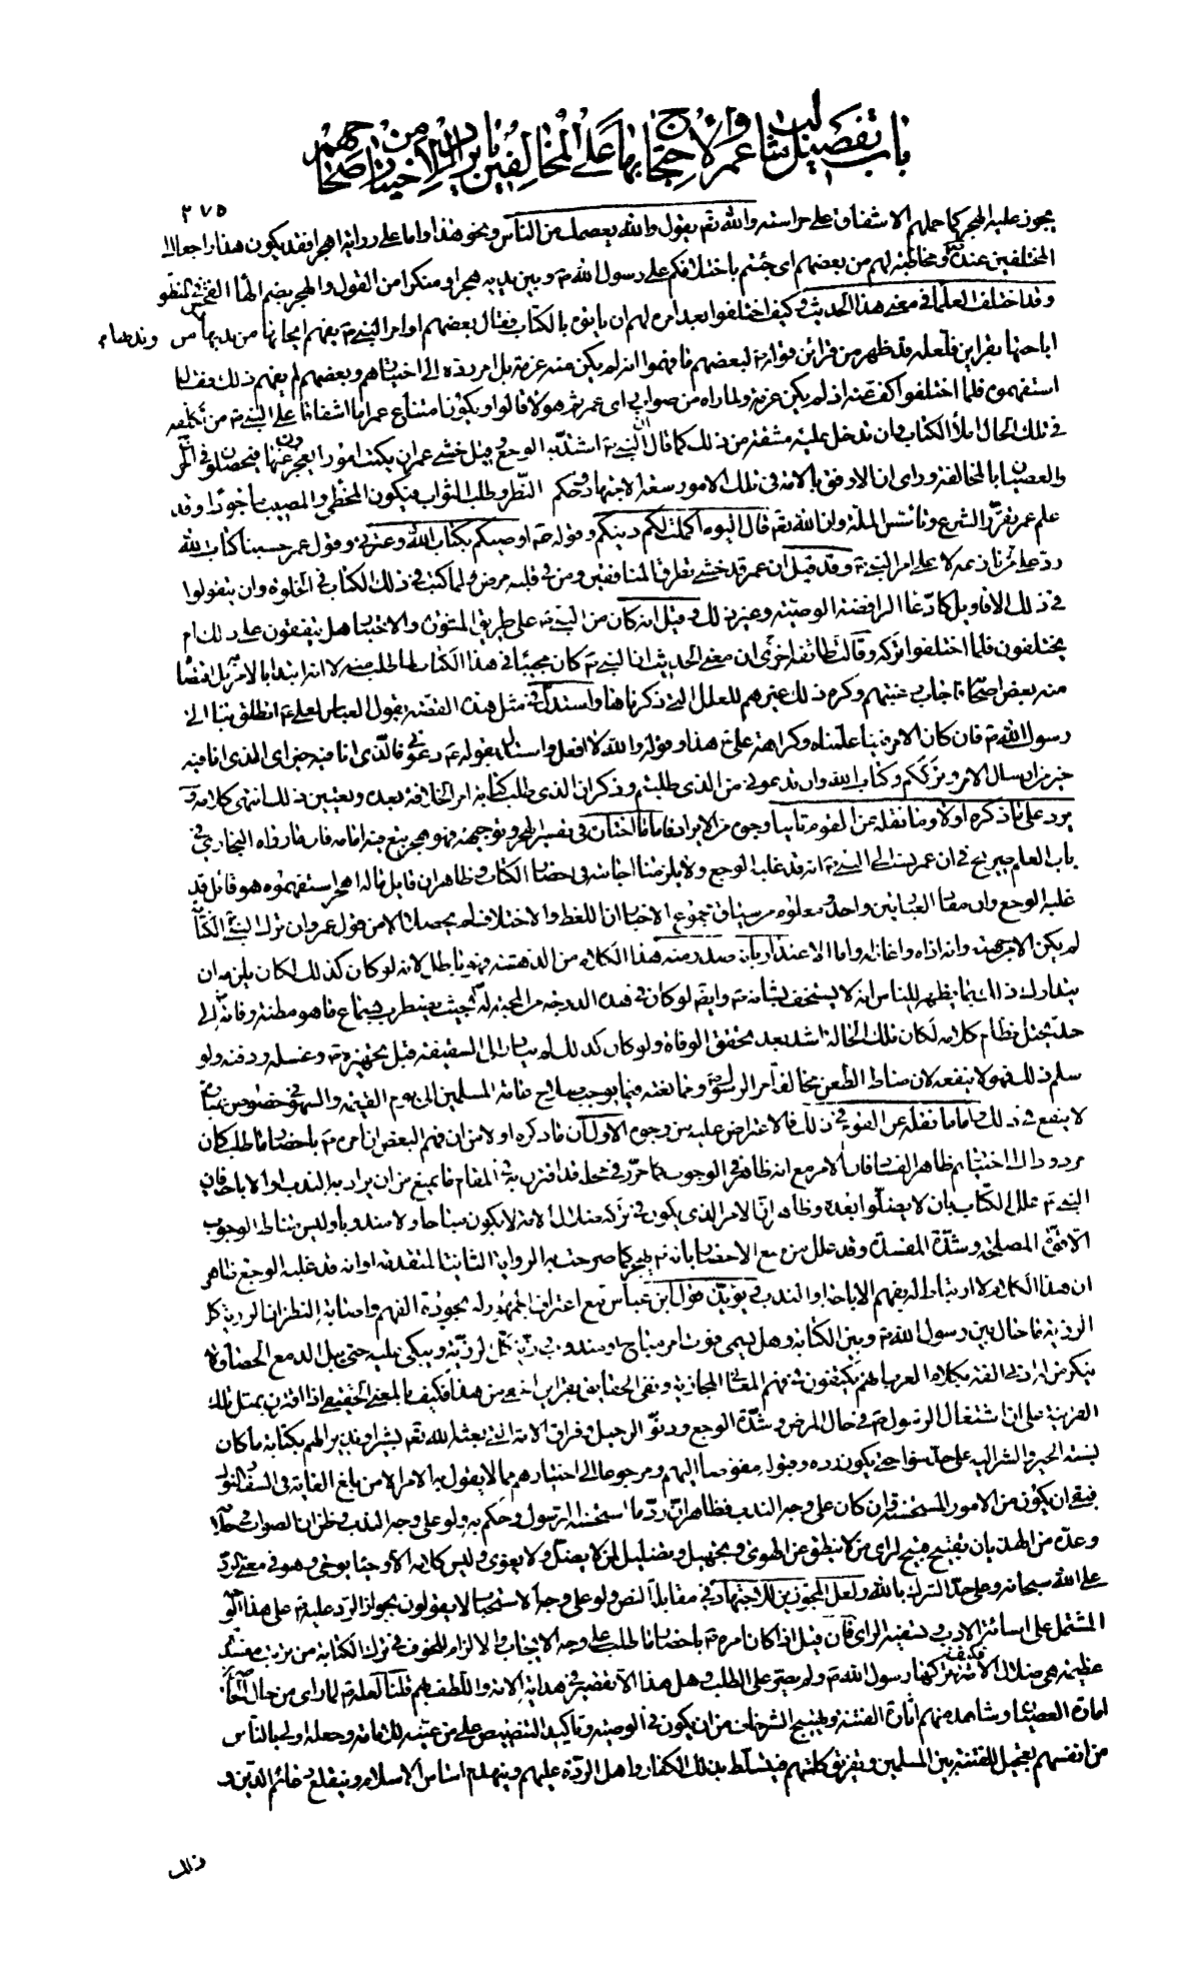 باب تفصيل مثالب عمر والاحتجاج بها على المخالفين بايراد الاخبار من صحاحهم
٢٧٥
يجوز عليه الهجر كما حملهم الاشفاق على حراسته والله تعم يقول والله يعصمك من الناس ونحو هذا واما على رواية اهجرا فقد يكون هذا راجعا الى
المختلفين عنده ص ومخاطبة لهم من بعضهم اى جئتم باختلافكم على رسول الله ص وبين يديه هجرا ومنكرا من القول والهجر بضم الهاء الفحش فى المنطق
وقد اختلف العلماء فى معنى هذا الحديث وكيف اختلفوا بعد امره لهم ان ياتوه بالكتاب فقال بعضهم اوامر النبى ص يفهم ايجابها من ندبها من
اباحتها بقراين فلعله قد ظهر من قرائن قوله ص لبعضهم ما فهموا انه لم يكن منه عزمة بل امر رده الى اختيارهم وبعضهم لم يفهم ذلك فقال
استفهموه فلما اختلفوا كف عنه اذ لم يكن عزمة ولما راوه من صواب راى عمر ثم هولاء قالوا ويكون امتناع عمر اما اشفاقا على النبى ص من تكلفه
فى تلك الحال املاء الكتاب وان تدخل عليه مشقة من ذلك كما قال ان النبى ص اشتد به الوجع وقيل خشى عمر ان يكتب امورا يعجزون عنها فيحصلون فى الحرج
والعصيان بالمخالفة وراى ان الاوفق بالامة فى تلك الامور سعة الاجتهاد وحكم النظر وطلب الثواب فيكون المخطى والمصيب ماجورا وقد
علم عمر تقرر الشرع وتاسس الملة وان الله تعم قال اليوم اكملت لكم دينكم وقوله ص اوصيكم بكتاب الله وعترتى وقول عمر حسبنا كتاب الله
رد على من نازعه لا على امر النبى ص وقد قيل ان عمر قد خشى تطرق المنافقين ومن فى قلبه مرض ولما كتب فى ذلك الكتاب فى الخلوة وان يتقولوا
فى ذلك الاقاويل كادعاء الرافضة الوصية وغير ذلك وقيل انه كان من النبى ص على طريق المشورة والاختبار هل يتفقون على ذلك ام
يختلفون فلما اختلفوا تركه وقالت طائفة اخرى ان معنى الحديث ان النبى ص كان مجيبا فى هذا الكتاب لما طلب منه لا انه ابتدا بالامر بل اقتضاه
منه بعض اصحابه فاجاب رغبتهم وكره ذلك غيرهم للعلل التى ذكرناها واستدل فى مثل هذه القصة بقول العباس لعلى ع انطلق بنا الى
رسول الله ص فان كان الامر فينا علمناه وكراهة على ع هذا وقوله والله لا افعل واستدل بقوله ص دعونى فالذى انا فيه خير اى الذى انا فيه
خير من ارسال الامر وترككم وكتاب الله وان تدعونى من الذى طلبتم وذكر ان الذى طلب كتابة امر الخلافة بعده وتعيين ذلك انتهى كلامه و
يرد على ما ذكره اولا وما نقله عن القوم ثانيا وجوه من الايراد فاما ما اختاره فى تفسير الهجر وتوجيهه فهو هجر يتبع هجر امامه فان ما رواه البخارى فى
باب العلم صريح فى ان عمر نسب الى النبى ص انه قد غلبه الوجع ولا يلزمنا اجابته فى احضار الكتاب وظاهر ان قايل ما له اهجر استفهموه هو قائل قد
غلبه الوجع وان مفاد العبارتين واحد ومعلوم من سياق مجموع الاخبار ان اللغط والاختلاف لم يحصل الا من قول عمر وان ترك النبى ص الكتابة
لم يكن الا من جهته وانه اذاه واغاظه واما الاعتذار بانه صدر منه هذا الكلام من الدهشة فهو باطل لانه لو كان كذلك لكان يلزمه ان
يتدارك ذلك بما يظهر للناس انه لا يستخف بشانه ص وايضم لو كان فى هذه الدرجة من المحبة له ص بحيث يضطرب بسماع ما هو مظنة وفاته الى
حد يختل نظام كلامه لكان تلك الحالة اشد بعد تحقق الوفاة ولو كان كذلك لم يبادر الى السقيفة قبل تجهيزه ص وغسله ودفنه ولو
سلم ذلك فهو لا ينفعه لان مناط الطعن مخالفة امر الرسول ص وممانعته فيما يوجب صلاح عامة المسلمين الى يوم القيمة والسهو فى خصوص عبارة
لا ينفع فى ذلك واما ما نقله عن القوم فى ذلك فالاعتراض عليه من وجوه الاول ان ما ذكره اولا من ان فهم البعض ان امره ص باحضار ما طلب كان
مردودا الى اختيارهم ظاهر الفساد فان الامر مع انه ظاهر فى الوجوب كما حرر فى محله قد اقترن به فى المقام ما يمنع من ان يراد به الندب او الاباحة فان
النبى ص علل الكتاب بان لا يضلوا بعده وظاهر ان الامر الذى يكون فى تركه ضلال الامة لا يكون مباحا ولا مندوبا وليس مناط الوجوب
الا قوة المصلحة وشدة المفسدة وقد علل من منع الاحضار بانه ص يهجر كما صرحت به الرواية الثانية المتقدمة او انه قد غلبه الوجع وظاهر
ان هذا الكلام لا ارتباط له بفهم الاباحة او الندب ويؤيده قول ابن عباس مع اعتراف الجمهور له بجودة الفهم واصابة النظر ان الرزية كل
الرزية ما حال بين رسول الله ص وبين الكتابة وهل يسمى فوت امر مباح او مندوب رزية كل الرزية ويبكى عليه حتى يبل الدمع الحصا ولا
ينكر من له ادنى الفة بكلام العرب انهم يكتفون فى فهم المعانى المجازية ونفى الحقايق بقراين اخفى من هذا فكيف بالمعنى الحقيقى اذا اقترن بمثل تلك
القرينة على ان اشتغال الرسول ص فى حال المرض وشدة الوجع ودنو الرحيل وفراق الامة التى بعثه الله تعم بشيرا ونذيرا لهم بكتابة ما كان
نسبة الخير والشر اليه على حد سواء حتى يكون رده وقبوله مفوضا اليهم ومرجوعا الى اختيارهم مما لا يقول به الا من بلغ الغاية فى السفه والنوك
فبقى ان يكون من الامور المستحسنة وان كان على وجه الندب فظاهر ان رد ما استحسنه الرسول وحكم به ولو على وجه الندب وظن ان الصواب فى خلافه
وعده من الهذيان تقبيح قبيح لراى من لا ينطق عن الهوى وتجهيل وتضليل لمن لا يضل ولا يغوى وليس كلامه الا وحيا يوحى وهو فى معنى الرد
على الله سبحانه وعلى حد الشرك بالله ولعل المجوزين للاجتهاد فى مقابلة النص ولو على وجه الاستحباب لا يقولون بجواز الرد عليه ص على هذا الوجه
المشتمل على اسائة الادب وتسفيه الراى فان قيل اذا كان امره ص باحضار ما طلب على وجه الايجاب والالزام للخوف فى ترك الكتابة من ترتب مفسدة
عظيمة هى ضلال الامة فكيف تركها رسول الله ص ولم يصر على الطلب وهل هذا الا تقصير فى هداية الامة واللطف بهم قلنا لعله ص لما راى من حال الحاضرين
امارة العصيان وشاهد منهم اثارة الفتنة وتهييج الشر خاف من ان يكون فى الوصية وتاكيد التنصيص على من عينه للامامة وجعله اولى بالناس
من انفسهم تعجيل للفتنة بين المسلمين وتفريق كلمتهم فيتسلط بذلك الكفار واهل الردة عليهم وينهدم اساس الاسلام وينقلع دعائم الدين و
ذلك